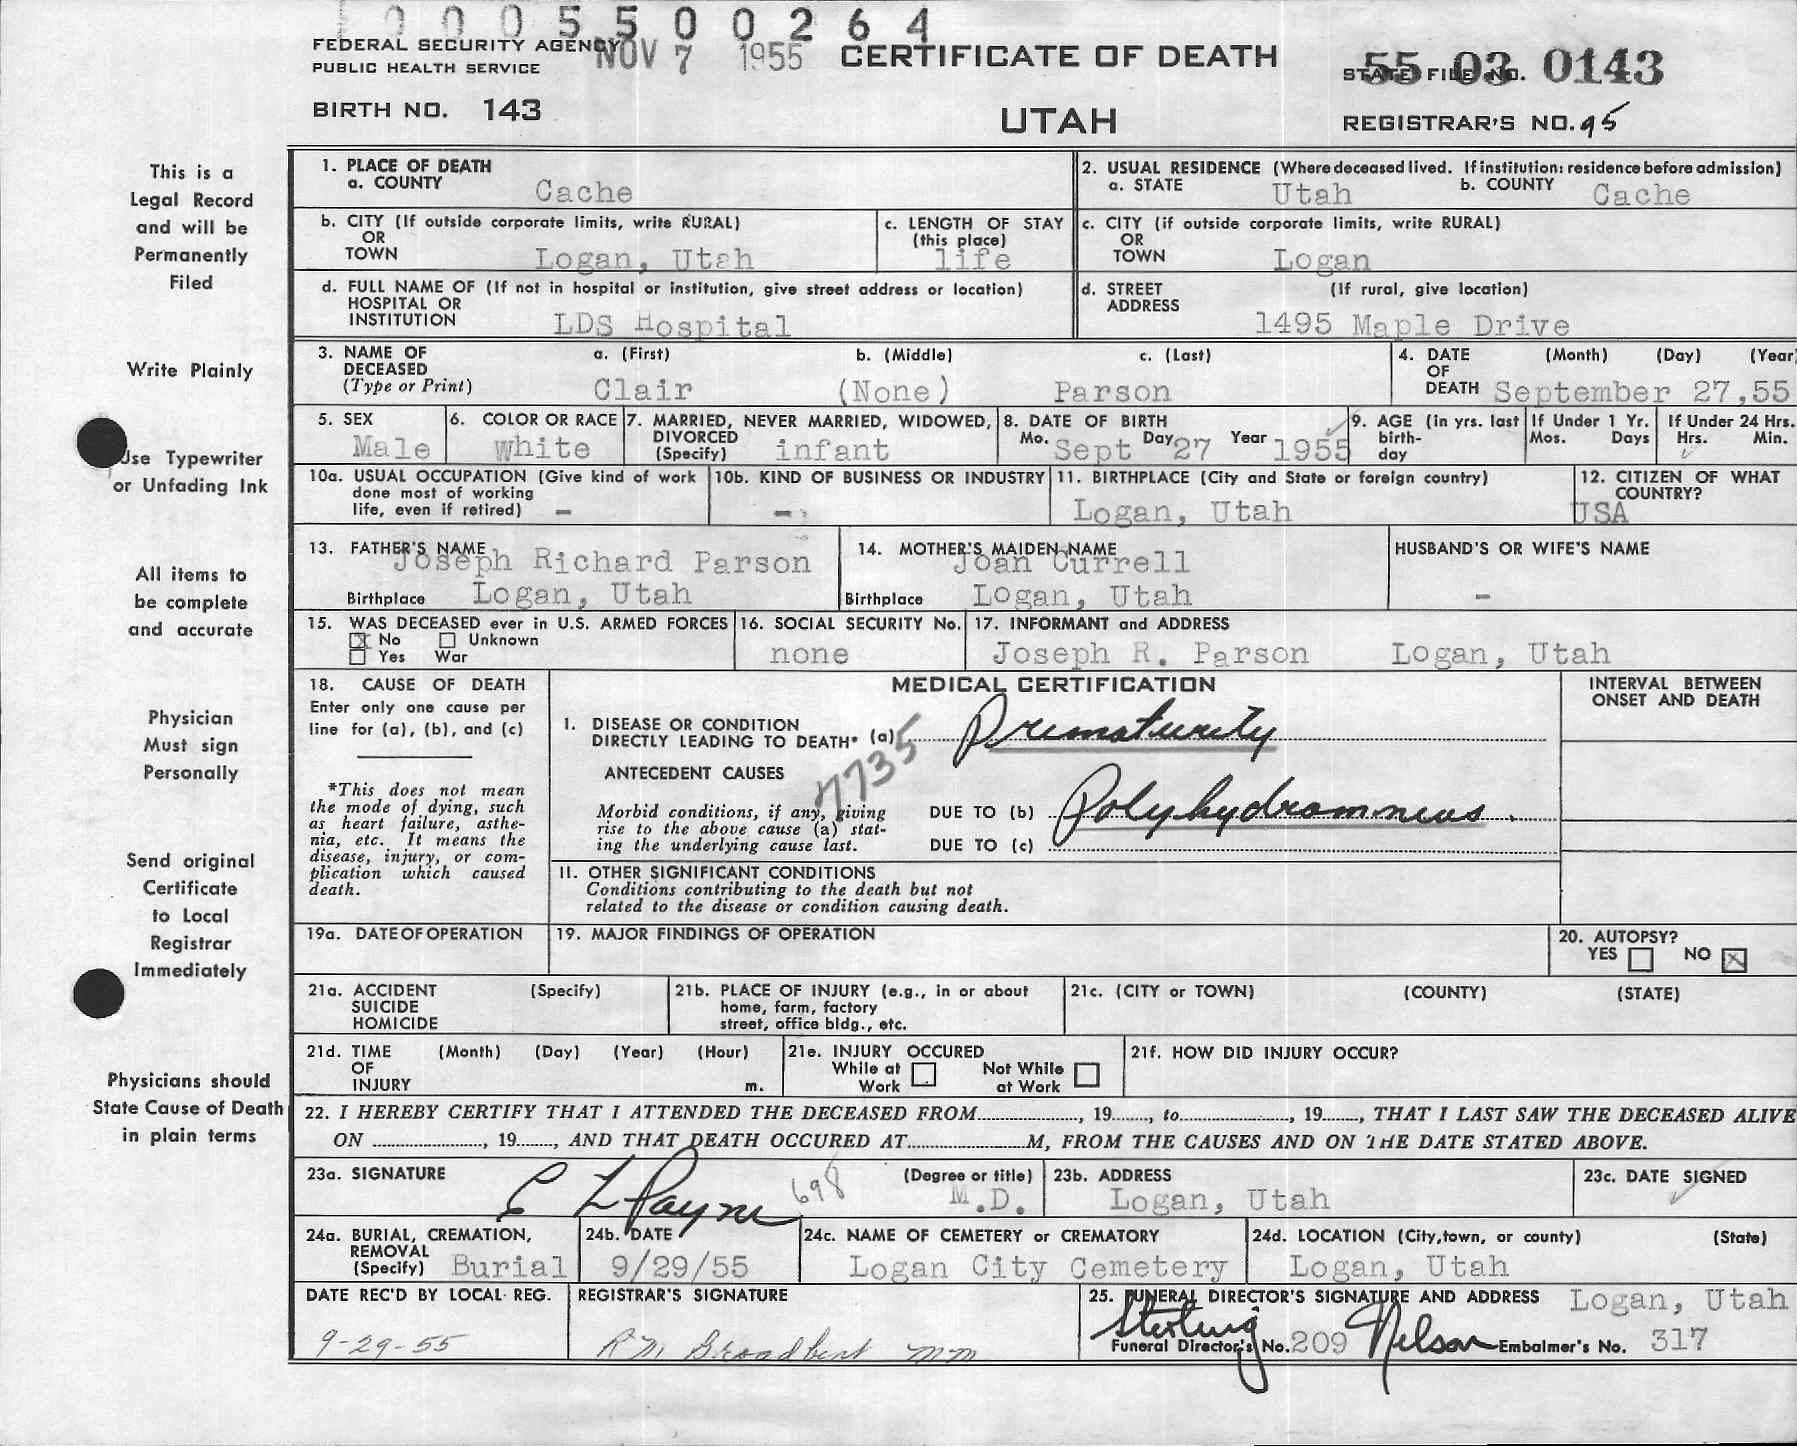 0005500264
FEDERAL SECURITY AGENCY NOV 7 1955 CERTIFICATE OF DEATH
PUBLIC HEALTH SERVICE STATE FILE NO. 55 03 0143
BIRTH NO. 143 UTAH REGISTRAR'S NO. 95
This is a
Legal Record
and will be
Permanently
Filed
Write Plainly
Use Typewriter
or Unfading Ink
All items to
be complete
and accurate
Physician
Must sign
Personally
Send original
Certificate
to Local
Registrar
Immediately
Physicians should
State Cause of Death
in plain terms
1. PLACE OF DEATH
a. COUNTY Cache
2. USUAL RESIDENCE (Where deceased lived. If institution: residence before admission)
a. STATE Utah b. COUNTY Cache
b. CITY (If outside corporate limits, write RURAL)
OR
TOWN Logan, Utah
c. LENGTH OF STAY
(this place)
life
c. CITY (if outside corporate limits, write RURAL)
OR
TOWN Logan
d. FULL NAME OF (If not in hospital or institution, give street address or location)
HOSPITAL OR
INSTITUTION LDS Hospital
d. STREET (If rural, give location)
ADDRESS
1495 Maple Drive
3. NAME OF a. (First) b. (Middle) c. (Last)
DECEASED
(Type or Print) Clair (None) Parson
4. DATE (Month) (Day) (Year
OF
DEATH September 27,55
5. SEX
Male
6. COLOR OR RACE
white
7. MARRIED, NEVER MARRIED, WIDOWED,
DIVORCED
(Specify) infant
8. DATE OF BIRTH
Mo. Sept Day 27 Year 1955
9. AGE (In yrs. last
birth-
day
If Under 1 Yr.
Mos. Days
If Under 24 Hrs.
Hrs. Min.
10a. USUAL OCCUPATION (Give kind of work
done most of working
life, even if retired) -
10b. KIND OF BUSINESS OR INDUSTRY
-
11. BIRTHPLACE (City and State or foreign country)
Logan, Utah
12. CITIZEN OF WHAT
COUNTRY?
USA
13. FATHER'S NAME
Joseph Richard Parson
Birthplace Logan, Utah
14. MOTHER'S MAIDEN NAME
Joan Currell
Birthplace Logan, Utah
HUSBAND'S OR WIFE'S NAME
-
15. WAS DECEASED ever in U.S. ARMED FORCES
☒ No ☐ Unknown
☐ Yes War
16. SOCIAL SECURITY No.
none
17. INFORMANT and ADDRESS
Joseph R. Parson Logan, Utah
18. CAUSE OF DEATH
Enter only one cause per
line for (a), (b), and (c)
*This does not mean
the mode of dying, such
as heart failure, asthe-
nia, etc. It means the
disease, injury, or com-
plication which caused
death.
MEDICAL CERTIFICATION
INTERVAL BETWEEN
ONSET AND DEATH
I. DISEASE OR CONDITION
DIRECTLY LEADING TO DEATH* (a) Prematurity
7735
ANTECEDENT CAUSES
Morbid conditions, if any, giving
rise to the above cause (a) stat-
ing the underlying cause last.
DUE TO (b) Polyhydramneus.
DUE TO (c)
II. OTHER SIGNIFICANT CONDITIONS
Conditions contributing to the death but not
related to the disease or condition causing death.
19a. DATE OF OPERATION
19. MAJOR FINDINGS OF OPERATION
20. AUTOPSY?
YES ☐ NO ☒
21a. ACCIDENT (Specify)
SUICIDE
HOMICIDE
21b. PLACE OF INJURY (e.g., in or about
home, farm, factory
street, office bldg., etc.
21c. (CITY or TOWN) (COUNTY) (STATE)
21d. TIME (Month) (Day) (Year) (Hour)
OF
INJURY m.
21e. INJURY OCCURED
While at Work ☐ Not While at Work ☐
21f. HOW DID INJURY OCCUR?
22. I HEREBY CERTIFY THAT I ATTENDED THE DECEASED FROM............, 19......, to............, 19......, THAT I LAST SAW THE DECEASED ALIVE
ON ............, 19......, AND THAT DEATH OCCURED AT............M, FROM THE CAUSES AND ON THE DATE STATED ABOVE.
23a. SIGNATURE (Degree or title)
E L Payne 698 M.D.
23b. ADDRESS
Logan, Utah
23c. DATE SIGNED
24a. BURIAL, CREMATION,
REMOVAL
(Specify) Burial
24b. DATE
9/29/55
24c. NAME OF CEMETERY or CREMATORY
Logan City Cemetery
24d. LOCATION (City, town, or county) (State)
Logan, Utah
DATE REC'D BY LOCAL REG.
9-29-55
REGISTRAR'S SIGNATURE
R M Broadbent mm
25. FUNERAL DIRECTOR'S SIGNATURE AND ADDRESS Logan, Utah
Sterling Nelson
Funeral Director's No. 209 Embalmer's No. 317